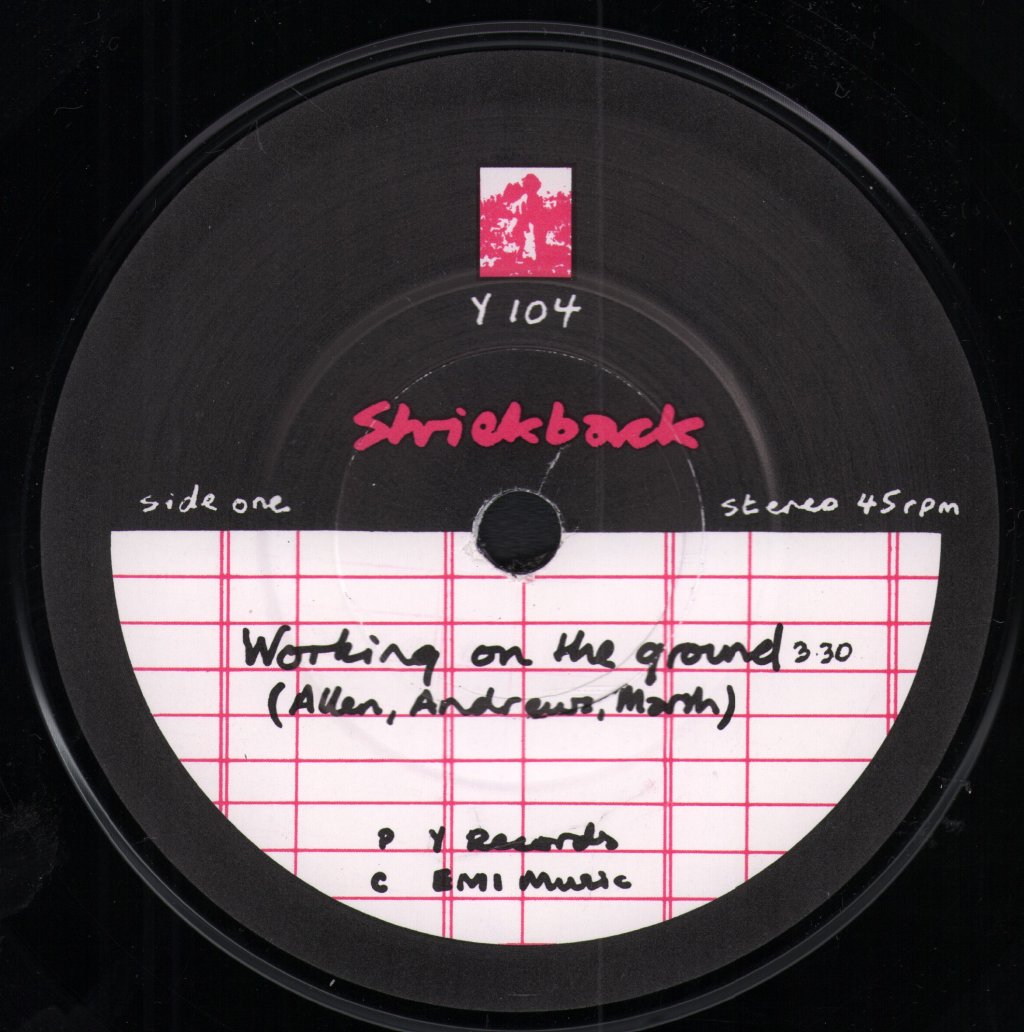 Y 104
Shriekback
side one
stereo 45 rpm
Working on the ground 3.30
(Allen, Andrews, Marsh)
P Y Records
C EMI Music